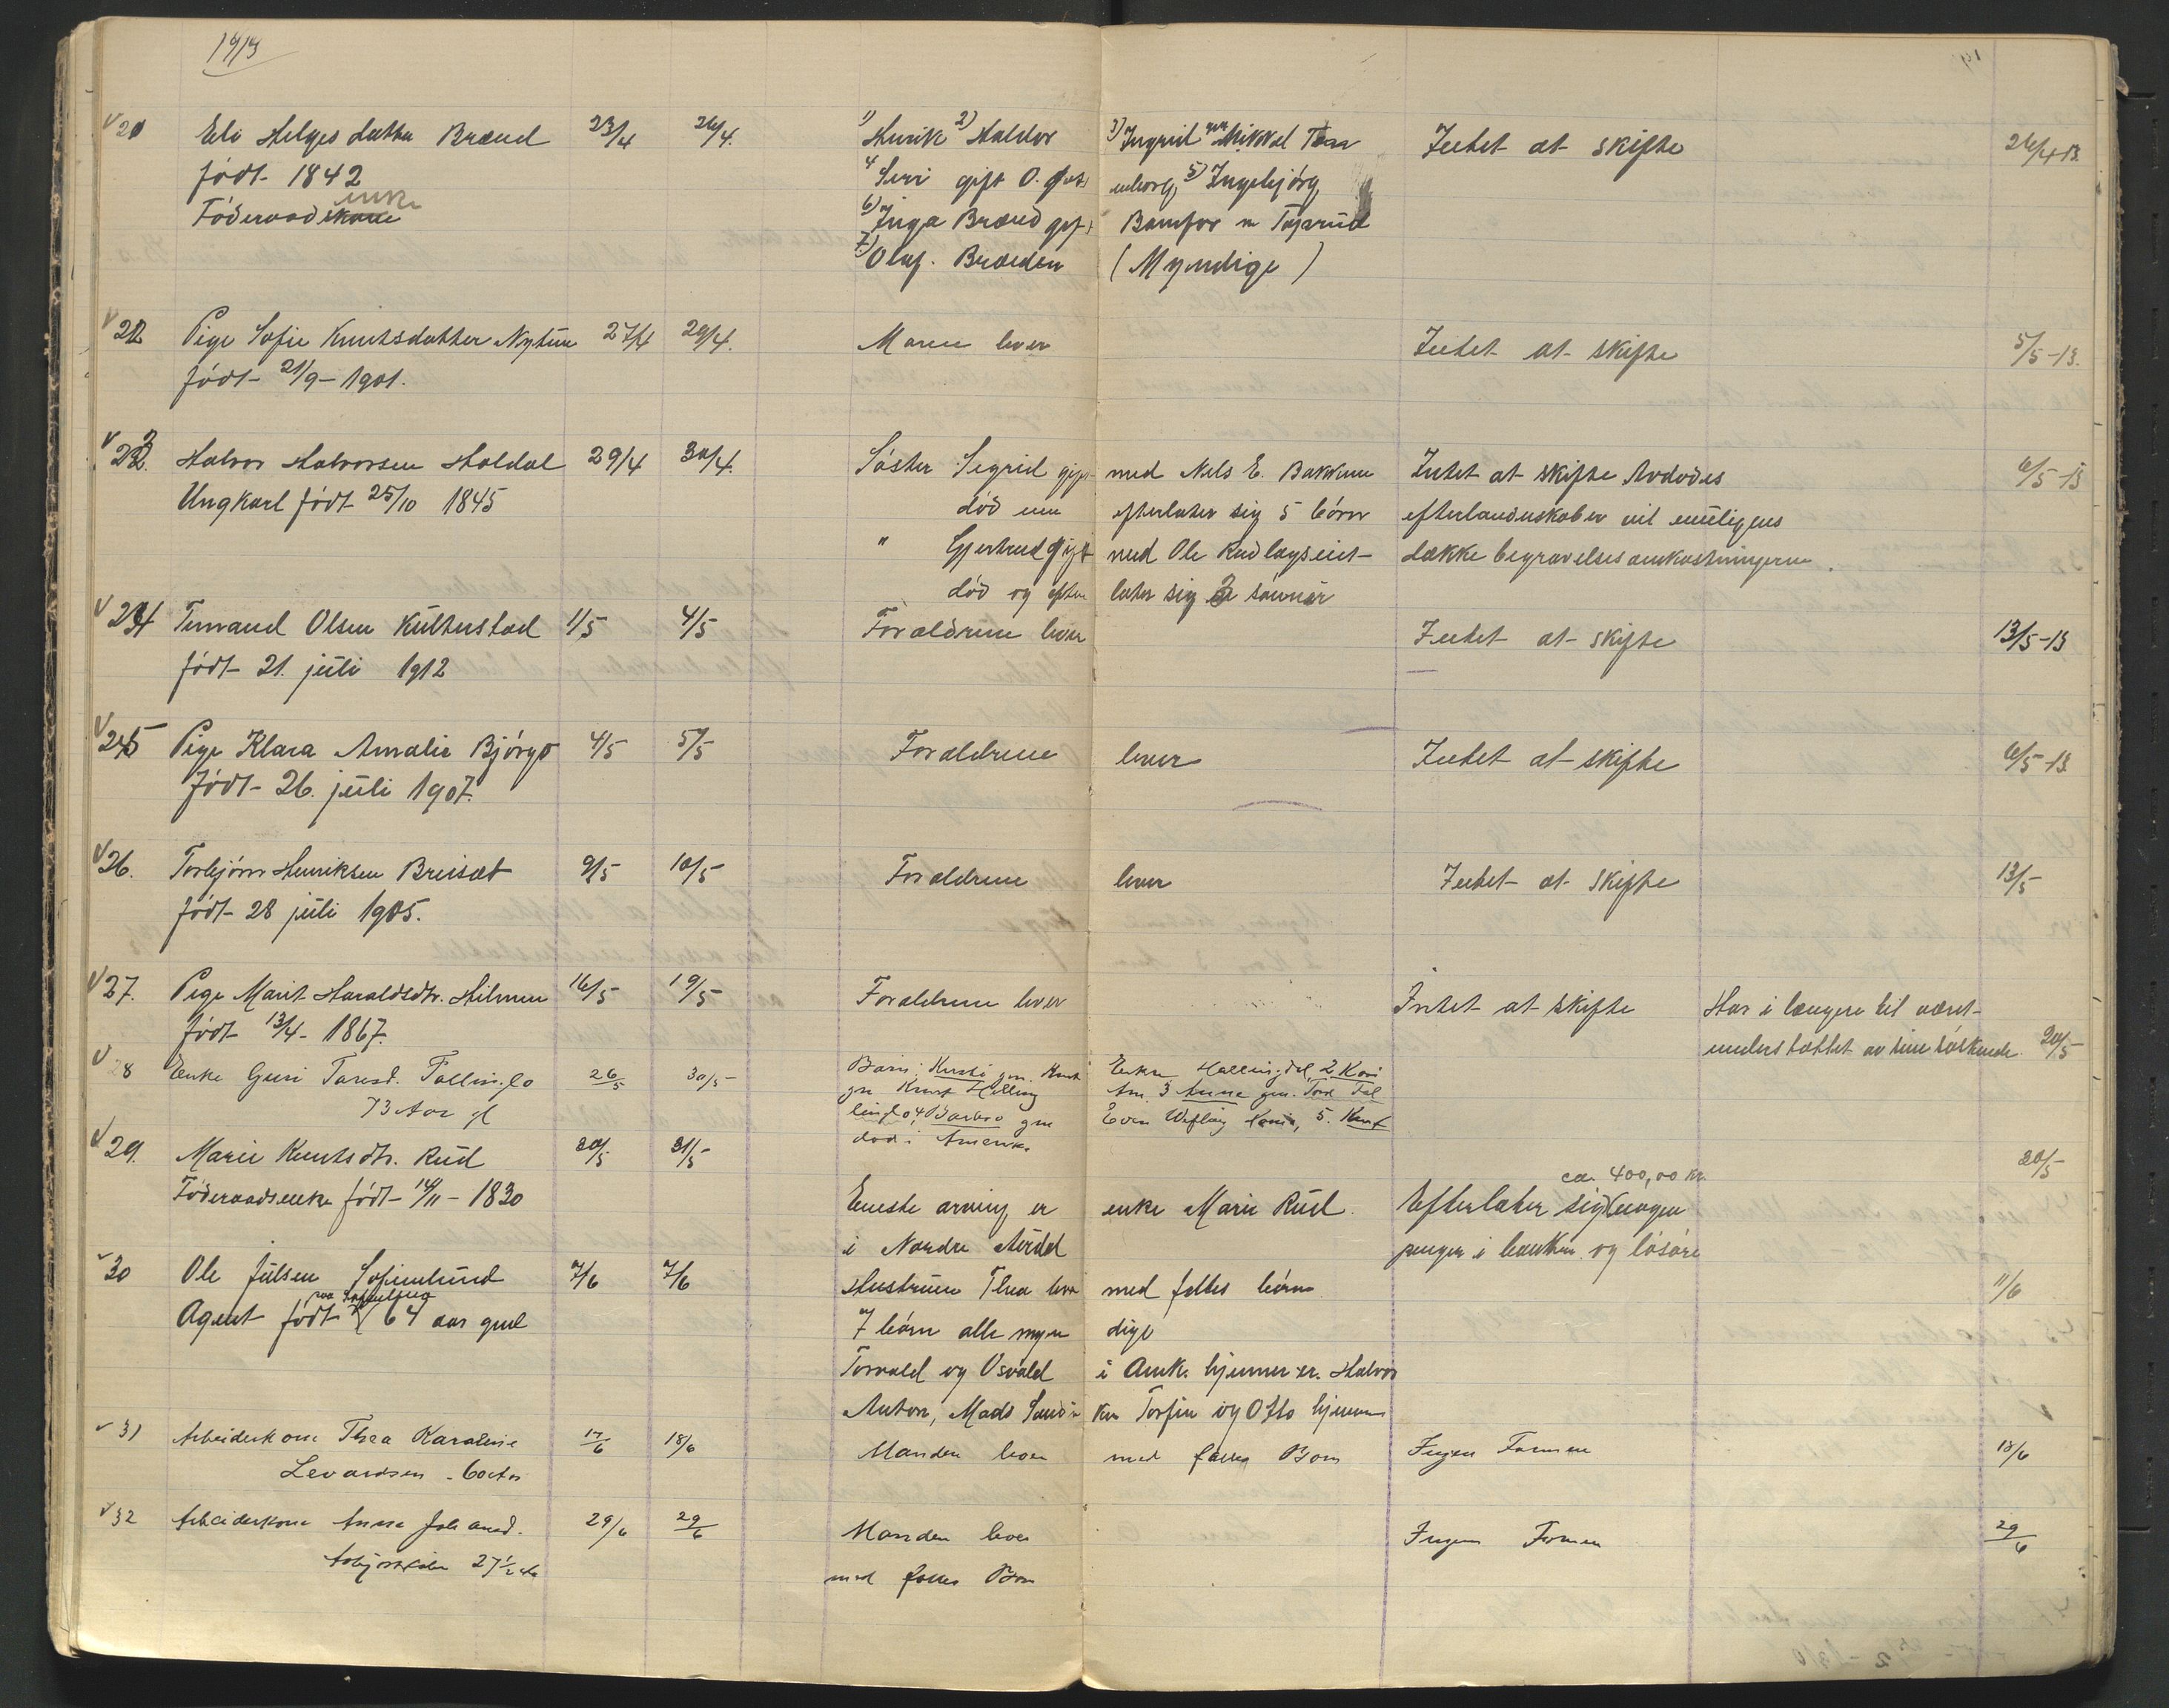 1913
20 Eli Helgesdatter Brænd 23/4 26/4. 1) Henrik 2) Haldor 3) Ingrid Mikkel Intet at skifte 26/4 13
født 1842 4 Siri gift O. 5) Ingebjørg
Føderaadskone enke 6) Inga Brænd gift
7) Olaf. Brænden (Myndige)
22 Pige Sofie Knutsdatter Nytun 27/4 29/4. Moren lever Intet at skifte 5/5-13.
født 21/9-1901.
Halvor Halvorsen Haldal 29/4 30/4. Søster Sigrid gift med Nels E. Bakkene Intet at skifte Avdødes 6/5-13
Ungkarl født 25/10 1845 død efterlater sig 5 børn efterladenskaber vil
" Gjertrud gift med Ole dække begravelsesomkostningerne.
død og efterlater sig sønner
24 Olsen 1/5 4/5 Forældrene lever Intet at skifte 13/5-13
født 21. juli 1912
25 Pige Klara Amalie Bjørgo 4/5 5/5 Forældrene lever Intet at skifte 6/5-13
født 26. juli 1907.
26. Torbjørn Henriksen 9/5 10/5 Forældrene lever Intet at skifte 13/5
født 28 juli 1905.
27. Pige Marit Haraldsdtr. Hilmen 16/5 19/5 Forældrene lever Intet at skifte Har i længere tid været
født 13/4-1867. understøttet av sine søskende. 20/5
28 Enke Guri 26/5 30/5 Barn: gm. Knut 2 Kari
73 Aar gl gm Knut 3 Anne gm.
4 Barbro gm 5. Knut
død i Amerika
29. Marie Knutsdtr. Rud 30/5 31/5 20/5
ca. 400,00 Kr.
Føderaadsenke født 14/11-1830 Eneste arving er enke Marie Rud. Efterlater sig nogen
i Nordre Aurdal penger i banken og løsøre
30 Ole Julsen Sofienlund 7/6 7/6 Hustruen Thea lever med fælles børn 11/6
Agent født 64 aar gml 7 børn alle myndige
Torvald og Osvald i Amk. hjemme er. Halvor
Anton, Mads Torfin og Otto hjemme
31 Arbeiderkone Thea Karoline 17/6 18/6 Manden lever med fælles Børn Ingen Formue 18/6
32 Arbeiderkone Anna 29/6 29/6 Manden lever Ingen Formue 29/6
27 1/2 med fælles Børn